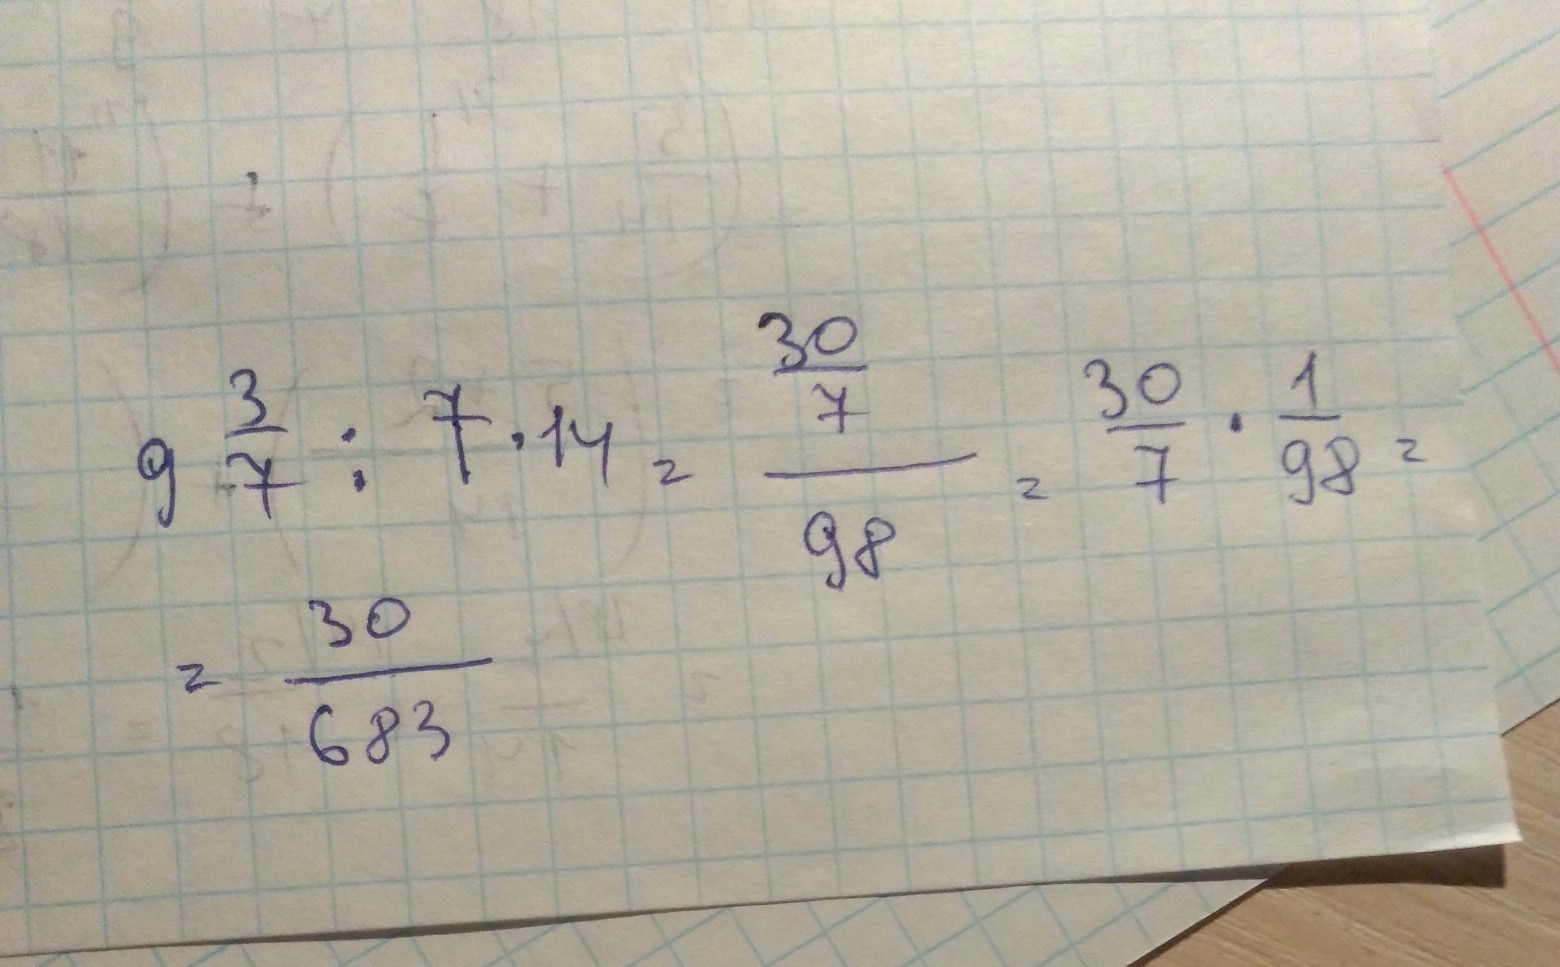 9 3/7 : 7 · 14 = (30/7)/98 = 30/7 · 1/98 =
= 30/683